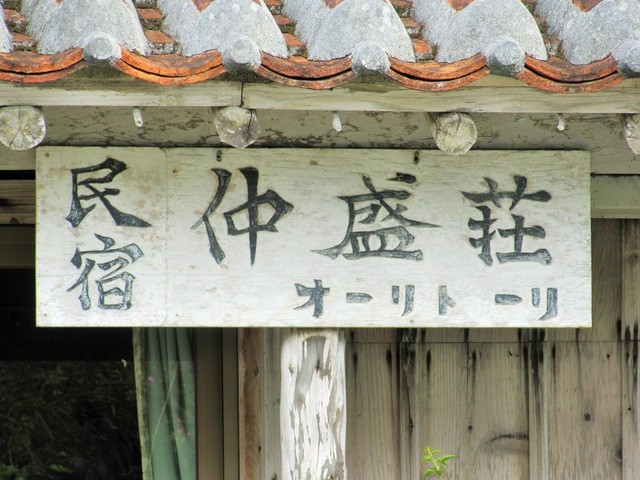 民宿 仲盛荘
オーリトーリ